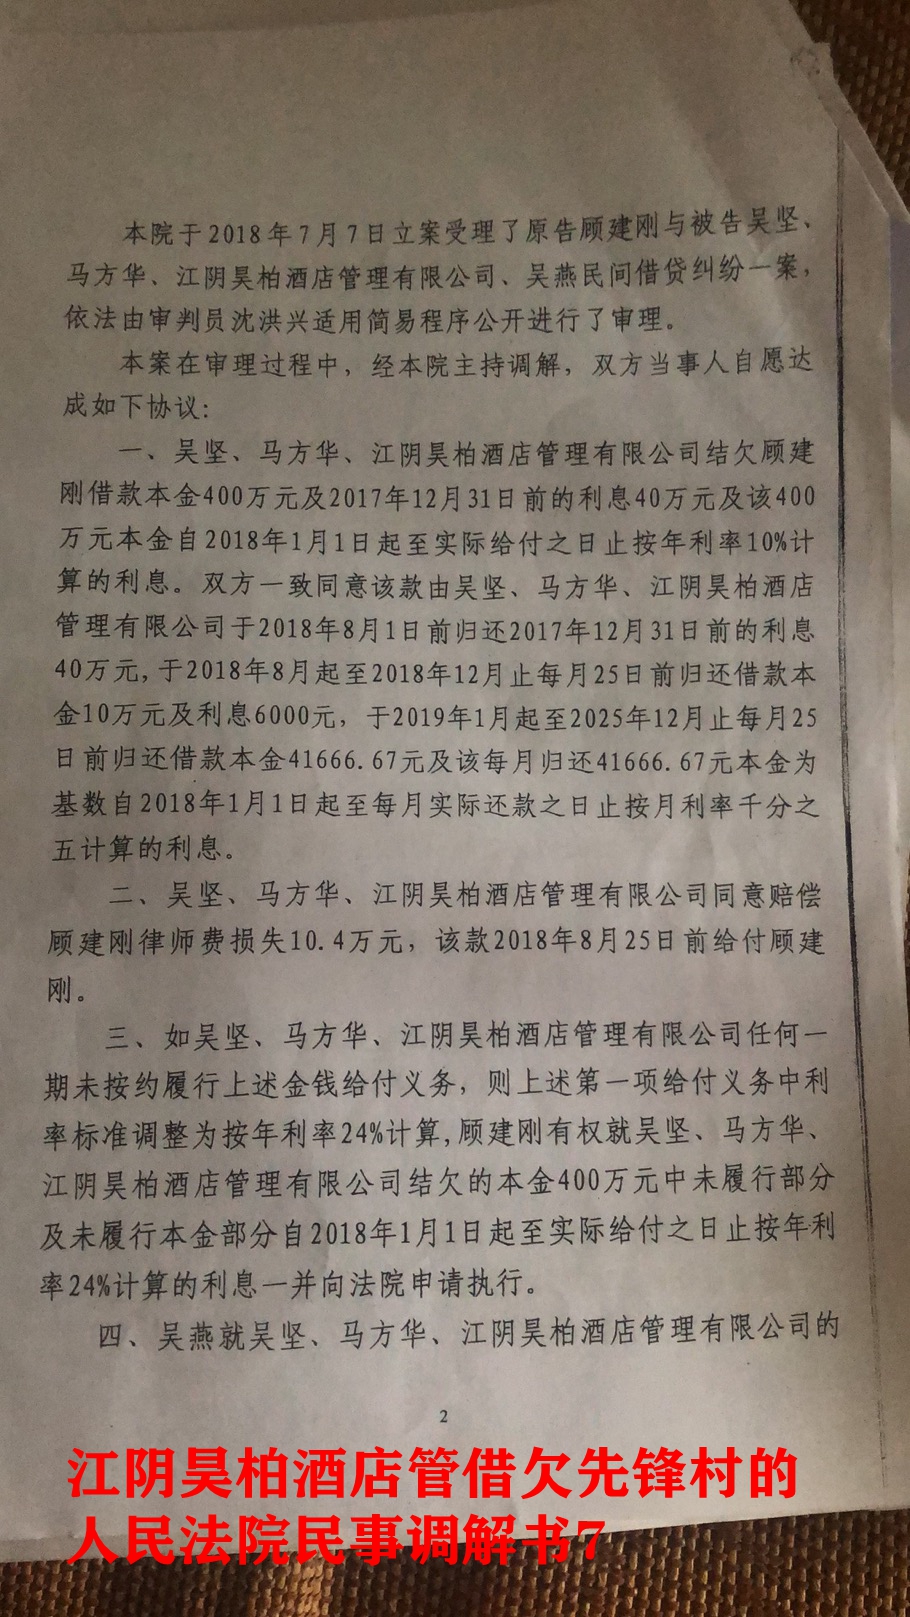 本院于2018年7月7日立案受理了原告顾建刚与被告吴坚、
马方华、江阴昊柏酒店管理有限公司、吴燕民间借贷纠纷一案，
依法由审判员沈洪兴适用简易程序公开进行了审理。
本案在审理过程中，经本院主持调解，双方当事人自愿达
成如下协议：
一、吴坚、马方华、江阴昊柏酒店管理有限公司结欠顾建
刚借款本金400万元及2017年12月31日前的利息40万元及该400
万元本金自2018年1月1日起至实际给付之日止按年利率10%计
算的利息。双方一致同意该款由吴坚、马方华、江阴昊柏酒店
管理有限公司于2018年8月1日前归还2017年12月31日前的利息
40万元,于2018年8月起至2018年12月止每月25日前归还借款本
金10万元及利息6000元，于2019年1月起至2025年12月止每月25
日前归还借款本金41666.67元及该每月归还41666.67元本金为
基数自2018年1月1日起至每月实际还款之日止按月利率千分之
五计算的利息。
二、吴坚、马方华、江阴昊柏酒店管理有限公司同意赔偿
顾建刚律师费损失10.4万元，该款2018年8月25日前给付顾建
刚。
三、如吴坚、马方华、江阴昊柏酒店管理有限公司任何一
期未按约履行上述金钱给付义务，则上述第一项给付义务中利
率标准调整为按年利率24%计算,顾建刚有权就吴坚、马方华、
江阴昊柏酒店管理有限公司结欠的本金400万元中未履行部分
及未履行本金部分自2018年1月1日起至实际给付之日止按年利
率24%计算的利息一并向法院申请执行。
四、吴燕就吴坚、马方华、江阴昊柏酒店管理有限公司的
2
江阴昊柏酒店管借欠先锋村的
人民法院民事调解书7